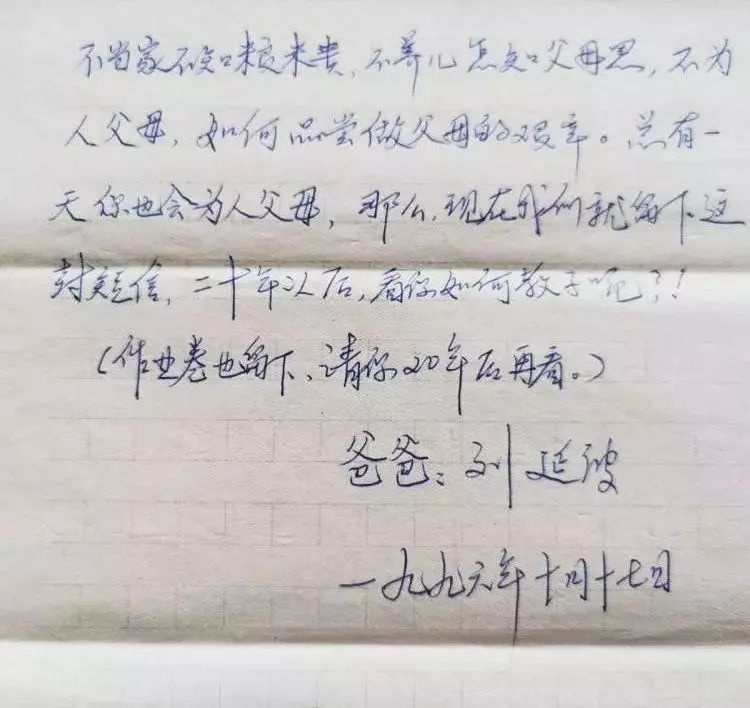 不当家不知粮米贵，不养儿怎知父母恩，不为
人父母，如何品尝做父母的艰辛。总有一
天你也会为人父母，那么，现在我们就留下这
封短信，二十年以后，看你如何教子呢？！
（作业卷也留下、请你20年后再看。）
爸爸：刘延波
一九九六年十月十七日